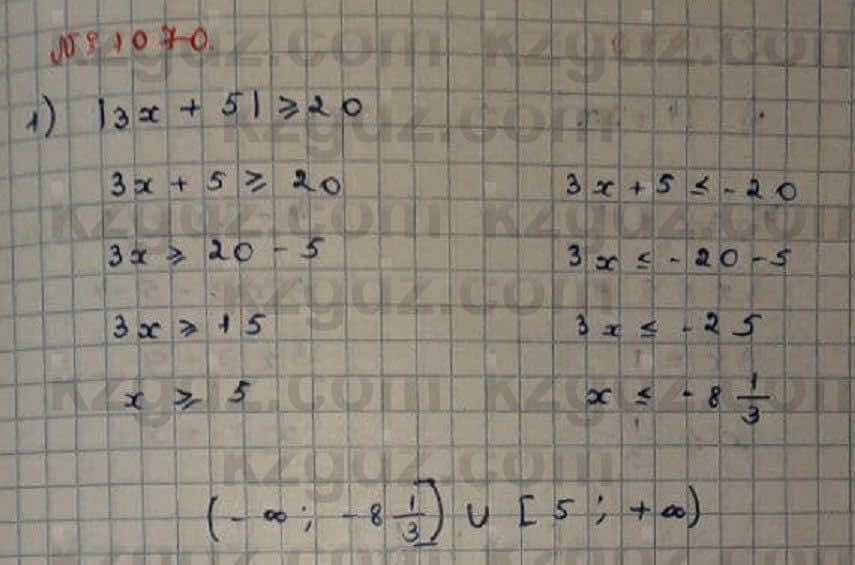 № 1070.
1) |3x + 5| ⩾ 20
3x + 5 ⩾ 20 3x + 5 ≤ -20
3x ⩾ 20 - 5 3x ≤ -20 - 5
3x ⩾ 15 3x ≤ -25
x ⩾ 5 x ≤ -8 1/3
(-∞; -8 1/3] ∪ [5; +∞)
kzgdz.com kzgdz.com
kzgdz.com
kzgdz.com kzgdz.com
kzgdz.com
kzgdz.com kzgdz.com
kzgdz.com